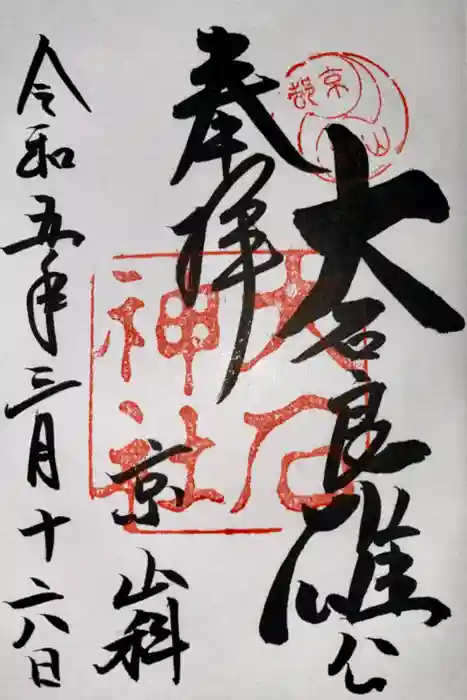 奉拝
大石良雄公
京都
山
大石神社
京山科
令和五年三月十六日